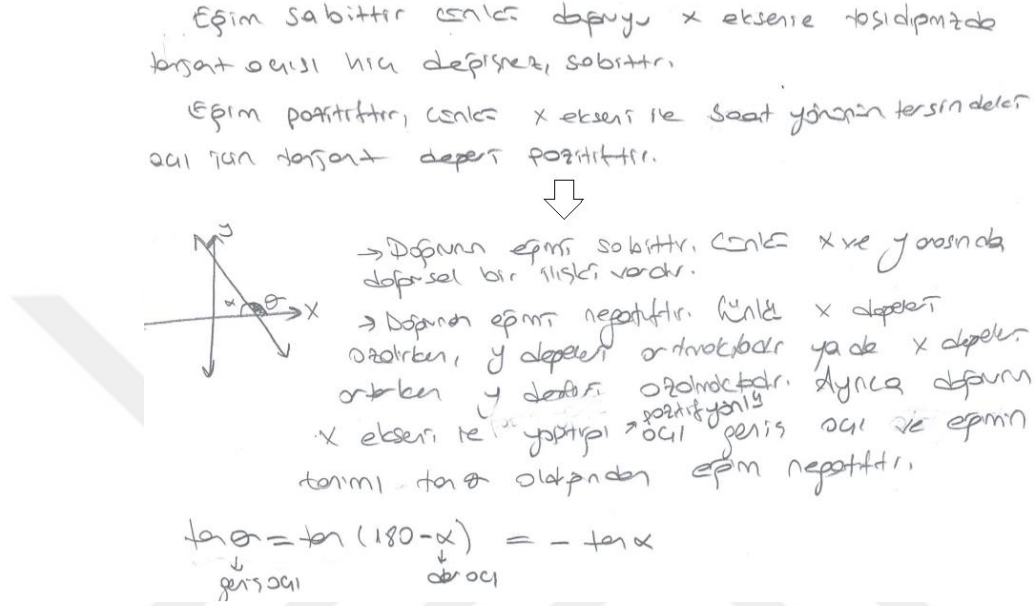 Eğim sabittir çünkü doğruyu x eksenine taşıdığımızda
tanjant açısı hiç değişmez, sabittir.
Eğim pozitiftir, çünkü x ekseni ile saat yönünün tersindeki
açı için tanjant değeri pozitiftir.
y
→ Doğrunun eğimi sabittir. Çünkü x ve y arasında
doğrusal bir ilişki vardır.
α θ x
→ Doğrunun eğimi negatiftir. Çünkü x değerleri
azalırken, y değerleri artmaktadır ya da x değerleri
artarken y değerleri azalmaktadır. Ayrıca doğrunun
pozitif yönlü
x ekseni ile yaptığı açı geniş açı ve eğimin
tanımı tan θ olduğundan eğim negatiftir.
tan θ = tan (180 - α) = - tan α
↓ ↓
geniş açı dar açı